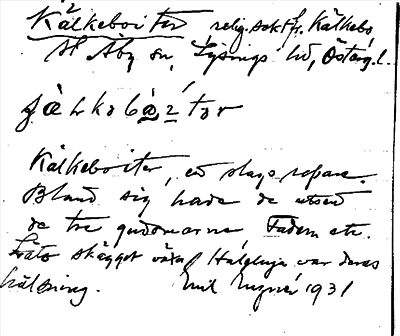 Kälkeboiter relig. sekt fr. Kälkebo,
St Åby sn, Lysings hd, Östergl.
Kälkeboiter, ett slags läsare.
Bland sig hade de utsett
de tre gudomarna Fadern etc.
Läto skägget växa. Haleluja var deras
hälsning. Emil 1931